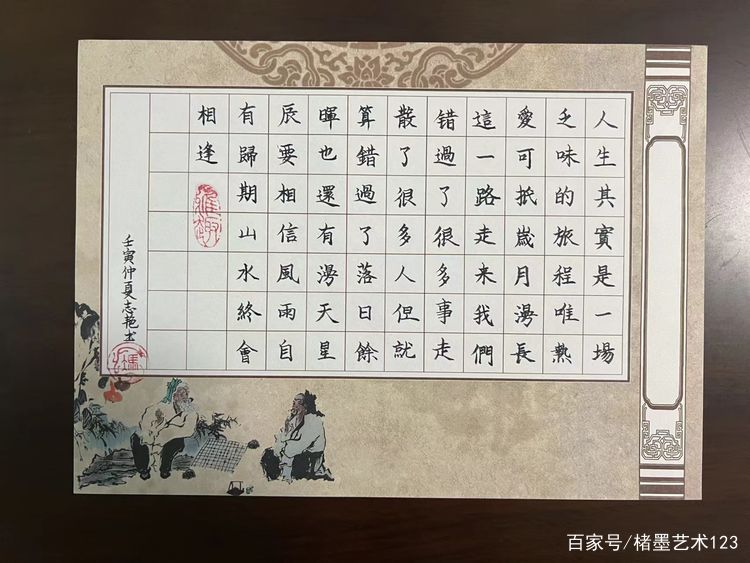 人生其實是一場
乏味的旅程唯熱
愛可抵歲月漫長
這一路走來我們
錯過了很多事走
散了很多人但就
算錯過了落日餘
暉也還有漫天星
辰要相信風雨自
有歸期山水終會
相逢
壬寅仲夏志艳书
百家号/楮墨艺术123